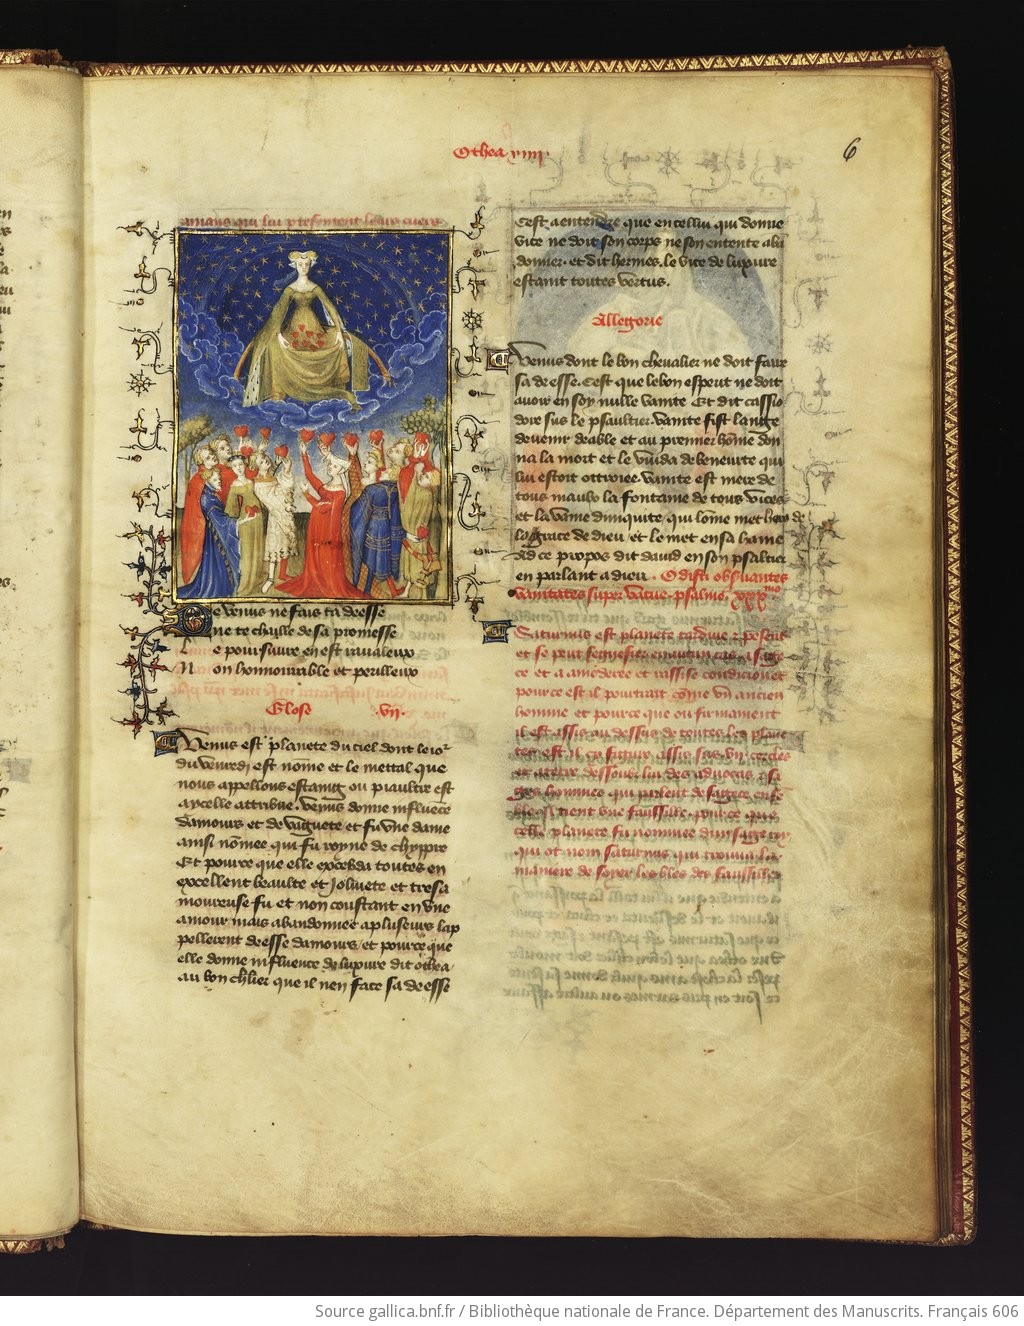 Othea
6
amans qui lui presentent leurs cuers
De venus ne fais ta deesse
ne te chaille de sa promesse
Le poursuivre en est
Non honnourable et perilleux
Glose .vij.
Venus est planete du ciel dont le ior
du vendredi est nome et le mettal que
nous appellons estaing ou piaultre est
a ycelle attribue. venus donne influece
damours et de vaguete et fu une dame
ainsi nomee qui fu royne de chyppre
Et pource que elle exceda toutes en
excellent beaulte et joliuete et tresa
moureuse fu et non constant en une
amour mais abandonnee a pluseurs lap
pellerent deesse damours et pource que
elle donne influence de luxure dit othea
au bon chlier que il nen face sa deesse
Cest a entendre que en cellui qui donne
vice ne doit son corps ne son entente aba
donner. et dit hermes. le vice de luxure
estaint toutes vertus.
Allegorie
Venus dont le bon chevalier ne doit faire
sa deesse. Cest que le bon esperit ne doit
avoir en soy nulle vanite Et dit cassio
dore sus le psaultier. vanite fist lange
devenir deable et au premier home don
na la mort et le vuida de beneurte qui
lui estoit ottroiee. vanite est mere de
tous maulx la fontaine de tous vices
et la vaine diniquite qui lome met hors de
la grace de dieu et le met en sa haine
Ad ce propos dit david en son psaltier
en parlant a dieu. Odisti observantes
vanitates super vacue. psalmo. xxxmo
Saturnus est planete tardive et pesant
et se peut segnefier sage
ce et amoderee et rassise condicion et
pource est il pourtrait come un ancien
homme et pource que ou firmament
il est assis au dessus de toutes les plane
tes est il cy figure assis sus .vij. cercles
et dessoubz lui des advocas et sa
ges hommes qui parlent de sagece
tient une faussille. pour ce que
celle planete fu nommee dun sage roy
qui ot nom saturnus qui trouva la
maniere de soyer les bles de faussilles
Source gallica.bnf.fr / Bibliothèque nationale de France. Département des Manuscrits. Français 606